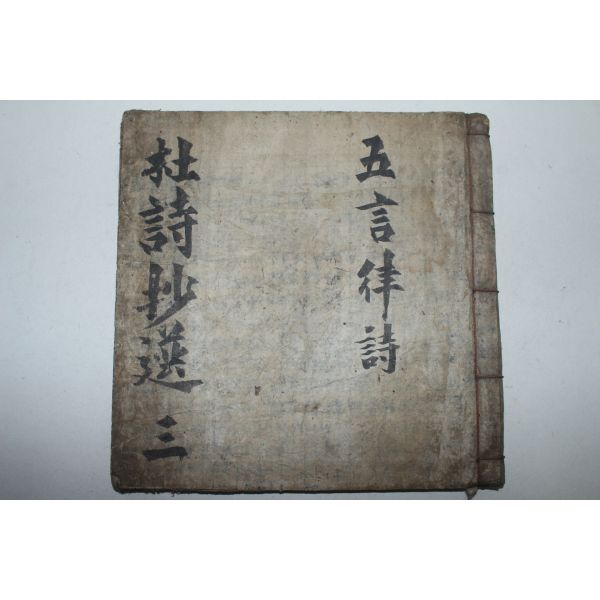 五言律詩
杜詩抄選 三